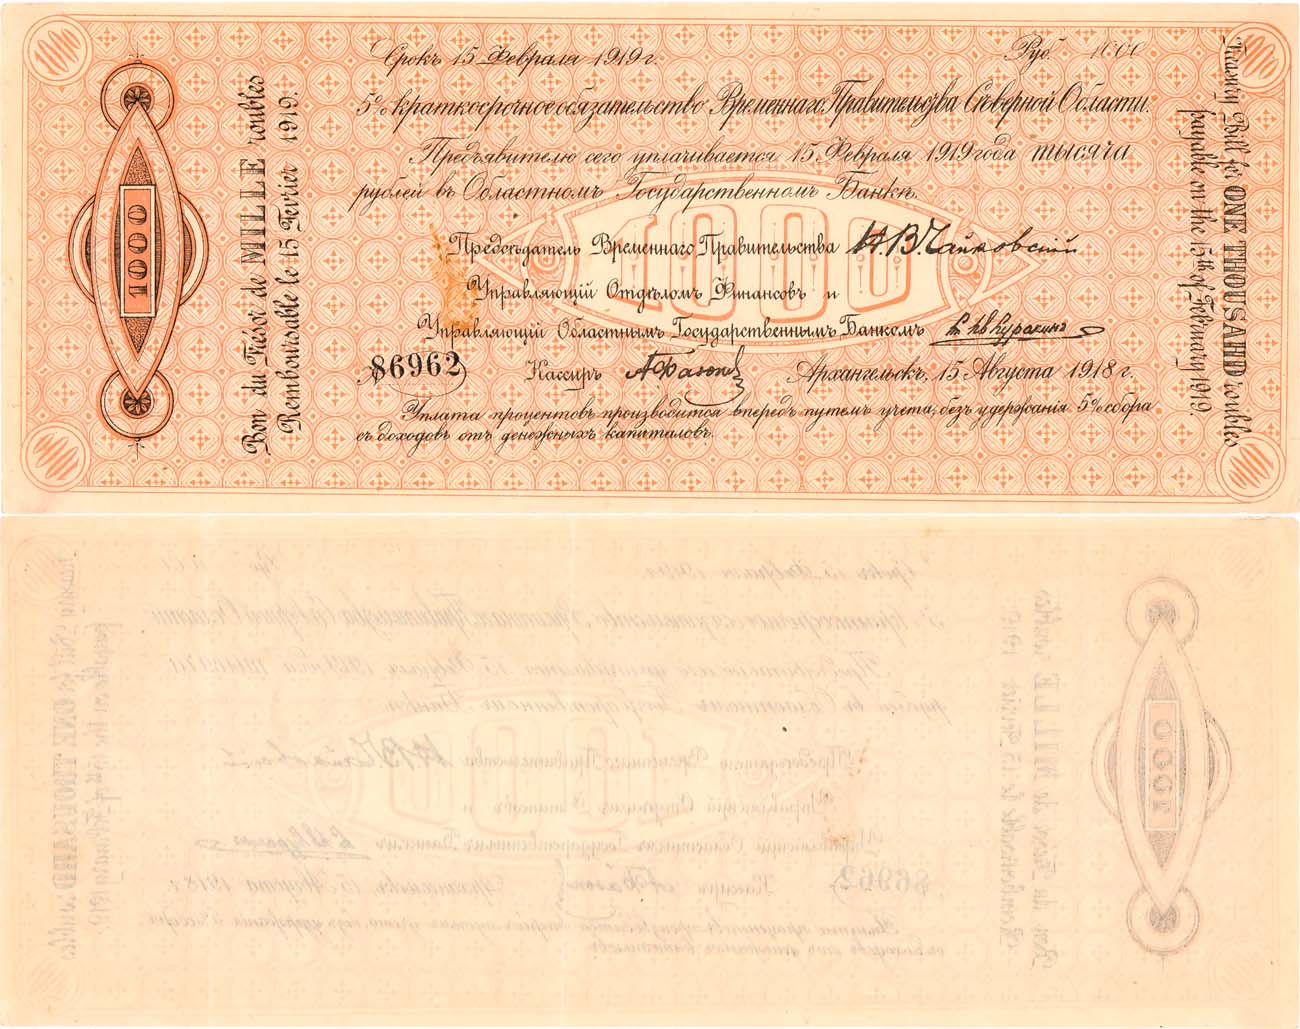 Срокъ 15 Февраля 1919 г. Руб. 1000
5% краткосрочное обязательство Временнаго Правительства Сѣверной Области.
Предъявителю сего уплачивается 15 Февраля 1919 года тысяча
рублей въ Областномъ Государственномъ Банкѣ.
1000
Предсѣдатель Временнаго Правительства Н.В. Чайковскій
Управляющій Отдѣломъ Финансовъ и
Управляющій Областнымъ Государственнымъ Банкомъ Кн. Ив. Куракинъ
№ 86962 Кассиръ
Архангельскъ, 15 Августа 1918 г.
Уплата процентовъ производится впередъ путемъ учета, безъ удержанія 5% сбора
съ доходовъ отъ денежныхъ капиталовъ.
1000
Bon du Trésor de MILLE roubles
Remboursable le 15 Fevrier 1919.
Treasury Bill for ONE THOUSAND roubles
payable on the 15th of February 1919.